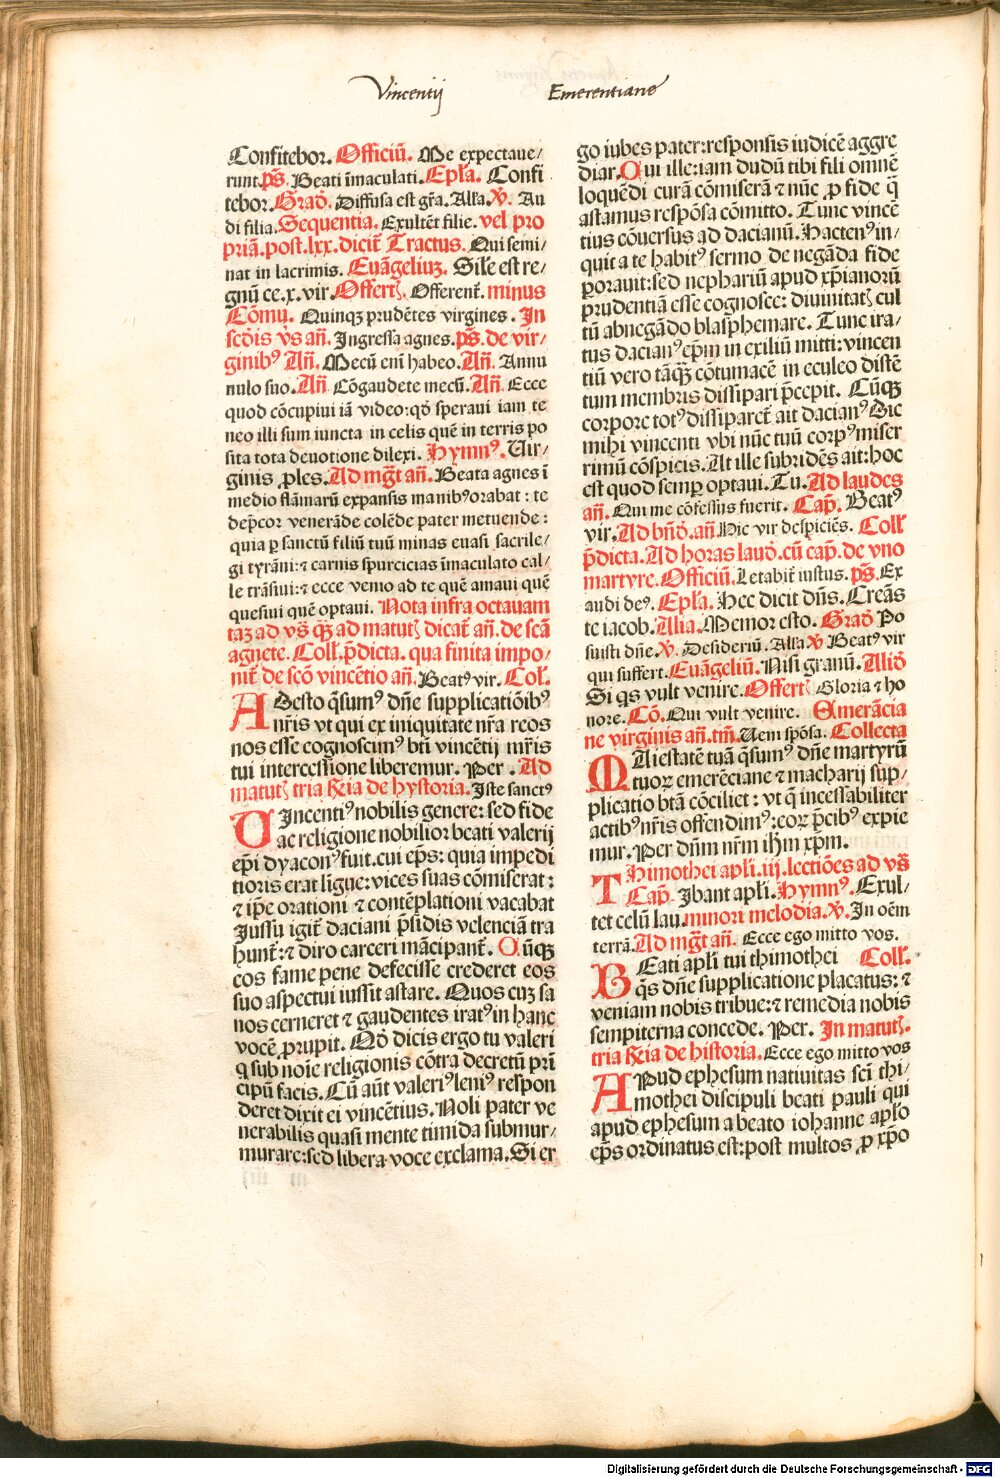 Vincentij
Emerentiane
Confitebor. Officiū. Me expectaue/
runt. ps̄. Beati īmaculati. Epl̄a. Confi
tebor. Grad̄. Diffusa est gr̄a. Alla. v̄. Au
di filia. Sequentia. Exultēt filie. vel pro
priā. post .lxx. dicit̄ Tractus. Qui semi/
nat in lacrimis. Euāgeliuȝ. Sil̄e est re/
gnū ce. x. vir. Offert̄. Offerent̄. minus
Cōmu. Quinqȝ prudētes virgines. In
sc̄dis v̄s an̄. Ingressa agnes. ps̄. de vir/
ginibꝰ An̄. Mecū eni habeo. An̄. Annu
nulo suo. An̄ Cōgaudete mecū. An̄. Ecce
quod cōcupiui iā video: qd̄ speraui iam te
neo illi sum iuncta in celis quē in terris po
sita tota deuotione dilexi. Hymnꝰ. Uir/
ginis ꝓles. Ad mgt̄ an̄. Beata agnes ī
medio flāmarū expansis manibꝰ orabat: te
dep̄cor venerāde colēde pater metuende:
quia ꝑ sanctū filiū tuū minas euasi sacrile/
gi tyrāni: ⁊ carnis spurcicias īmaculato cal/
le trāsiui: ⁊ ecce venio ad te quē amaui quē
quesiui quē optaui. Nota infra octauam
taȝ ad vs̄ qȝ̄ ad matut̄ dicat̄ an̄. de sc̄a
agnete. Coll̄. p̄dicta. qua finita impo/
nit̄ de sc̄o vincētio an̄. Beatꝰ vir. Col̄.
ADesto qs̄umꝰ dn̄e supplicatiōibꝰ
nr̄is vt qui ex iniquitate nr̄a reos
nos esse cognoscimꝰ bt̄i vincētij mr̄is
tui intercessione liberemur. Per. Ad
matut̄ tria r̄ria de hystoria. Iste sanctꝰ
UIncentiꝰ nobilis genere: sed fide
ac religione nobilior beati valerij
ep̄i dyaconꝰ fuit. cui ep̄s: quia impedi
tioris erat ligue: vices suas cōmiserat:
⁊ ip̄e orationi ⁊ contēplationi vacabat
Iussu igit̄ daciani p̄sidis velenciā tra
hunt̄: ⁊ diro carceri mācipant̄. Cūqȝ
eos fame pene defecisse crederet eos
suo aspectui iussit astare. Quos cuȝ sa
nos cerneret ⁊ gaudentes iratꝰ in hanc
vocē prupit. Qd̄ dicis ergo tu valeri
q̄ sub noīe religionis cōtra decretū pri
cipū facis. Cū aūt valeriꝰ leniꝰ respon
deret dixit ei vincētius. Noli pater ve
nerabilis quasi mente timida submur/
murare: sed libera voce exclama. Si er
go iubes pater: responsis iudicē aggre
diar. Cui ille: iam dudū tibi fili omnē
loquēdi curā cōmiserā ⁊ nūc ꝓ fide q̄
astamus respōsa cōmitto. Tunc vincē
tius cōuersus ad dacianū. Hactenꝰ in/
quit a te habitꝰ sermo de negāda fide
ꝑorauit: sed nephariū apud xp̄ianorū
prudentiā esse cognosce: diuinitat̄ cul
tū abnegādo blasphemare. Tunc ira/
tus dacianꝰ ep̄m in exiliū mitti: vincen
tiū vero tāqȝ cōtumacē in eculeo distē
tum membris dissipari p̄cepit. Cūqȝ
corpore totꝰ dissiparet̄ ait dacianꝰ Dic
mihi vincenti vbi nūc tuū corpꝰ miser
rimū cōspicis. At ille subridēs ait: hoc
est quod semꝑ optaui. Tu. Ad laudes
an̄. Qui me cōfessus fuerit. Cap̄. Beatꝰ
vir. Ad bn̄d̄. an̄ Hic vir despiciēs. Coll̄
p̄dicta. Ad horas laud̄. cū cap̄. de vno
martyre. Officiū. Letabit̄ iustus. ps̄. Ex
audi deꝰ. Epl̄a. Hec dicit dn̄s. Creās
te iacob. Alia. Memor esto. Grad̄ Po
suisti dn̄e. v̄. Desideriū. Alla v̄ Beatꝰ vir
qui suffert. Euāgeliū. Nisi granū. Aliō
Si qs vult venire. Offert̄ Gloria ⁊ ho
nore. Cō. Qui vult venire. Emerācia
ne virginis an̄. tm̄. Uem spōsa. Collecta
MAiestatē tuā qs̄umꝰ dn̄e martyrū
tuoꝝ emerēciane ⁊ macharij sup/
plicatio btā cōciliet: vt q̄ incessabiliter
actibꝰ nr̄is offendimꝰ: eoꝝ p̄cibꝰ expie
mur. Per dn̄m nr̄m ih̄m xp̄m.
THimothei apl̄i. iij. lectiōes ad vs̄
Cap̄. Ibant apl̄i. Hymnꝰ. Exul/
tet celū lau. minori melodia. v̄. In oēm
terrā. Ad mgt̄ an̄. Ecce ego mitto vos.
BEati apl̄i tui thimothei Coll̄.
qs̄ dn̄e supplicatione placatus: ⁊
veniam nobis tribue: ⁊ remedia nobis
sempiterna concede. Per. In matut̄.
tria r̄ria de historia. Ecce ego mitto vos
APud ephesum natiuitas sc̄i thi/
mothei discipuli beati pauli qui
apud ephesum a beato iohanne apl̄o
ep̄s ordinatus est: post multos ꝓ xp̄o
Digitalisierung gefördert durch die Deutsche Forschungsgemeinschaft - DFG